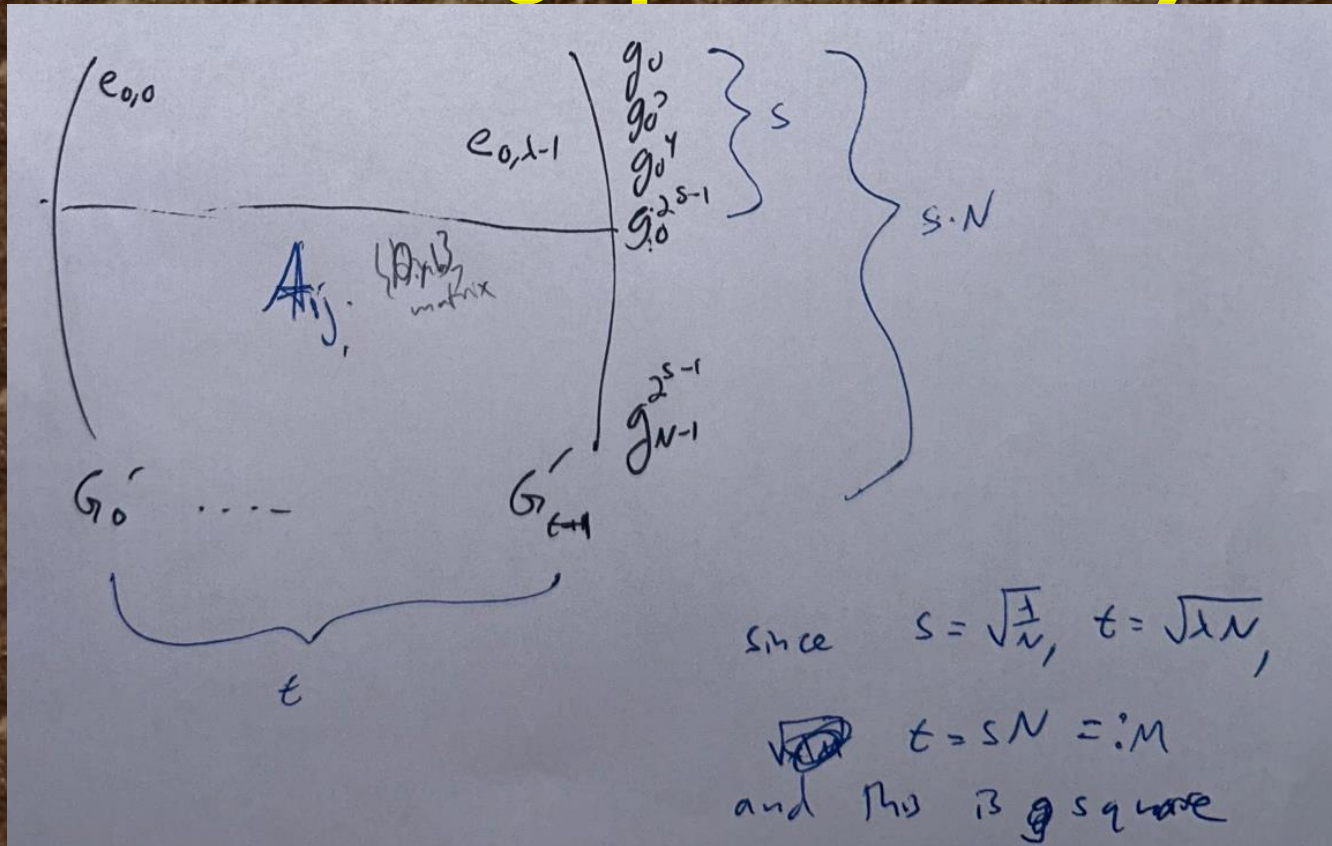 e₀,₀
e₀,λ-1
g₀
g₀²
g₀⁴
g₀^2^s-1
s
s·N
Aᵢⱼ
matrix
g_N-1^2^s-1
G₀′ ....
G′
t
since s = √(λ/N), t = √(λN),
t = sN =: M
and this is a square